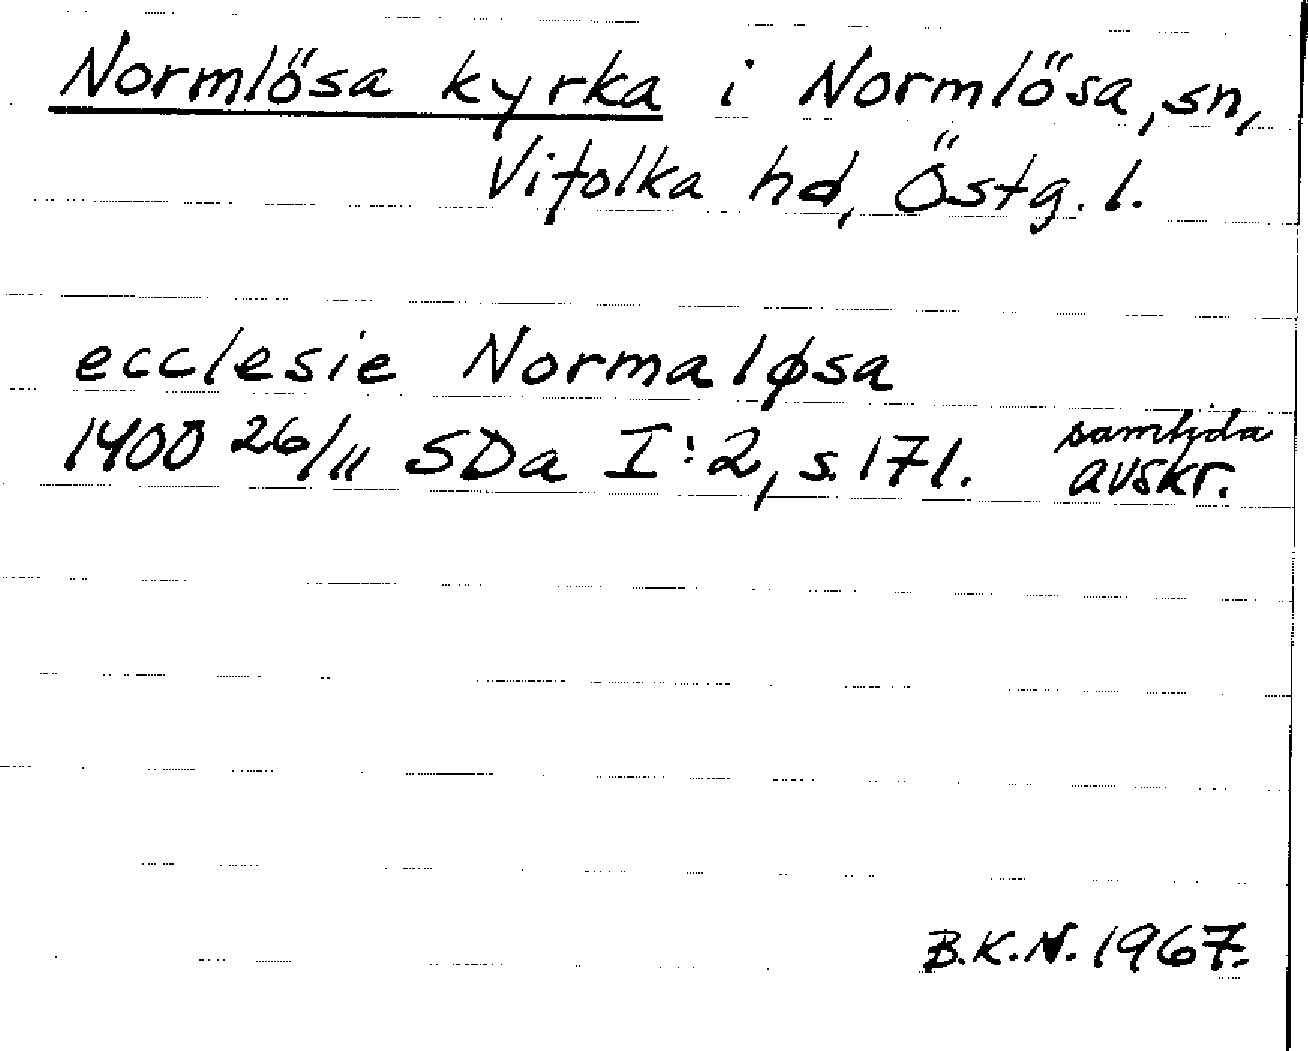 Normlösa kyrka i Normlösa, sn,
Vifolka hd, Östg. l.
ecclesie Normaløsa
1400 26/11 SDa I:2, s. 171. samtida avskr.
B.K.N. 1967.